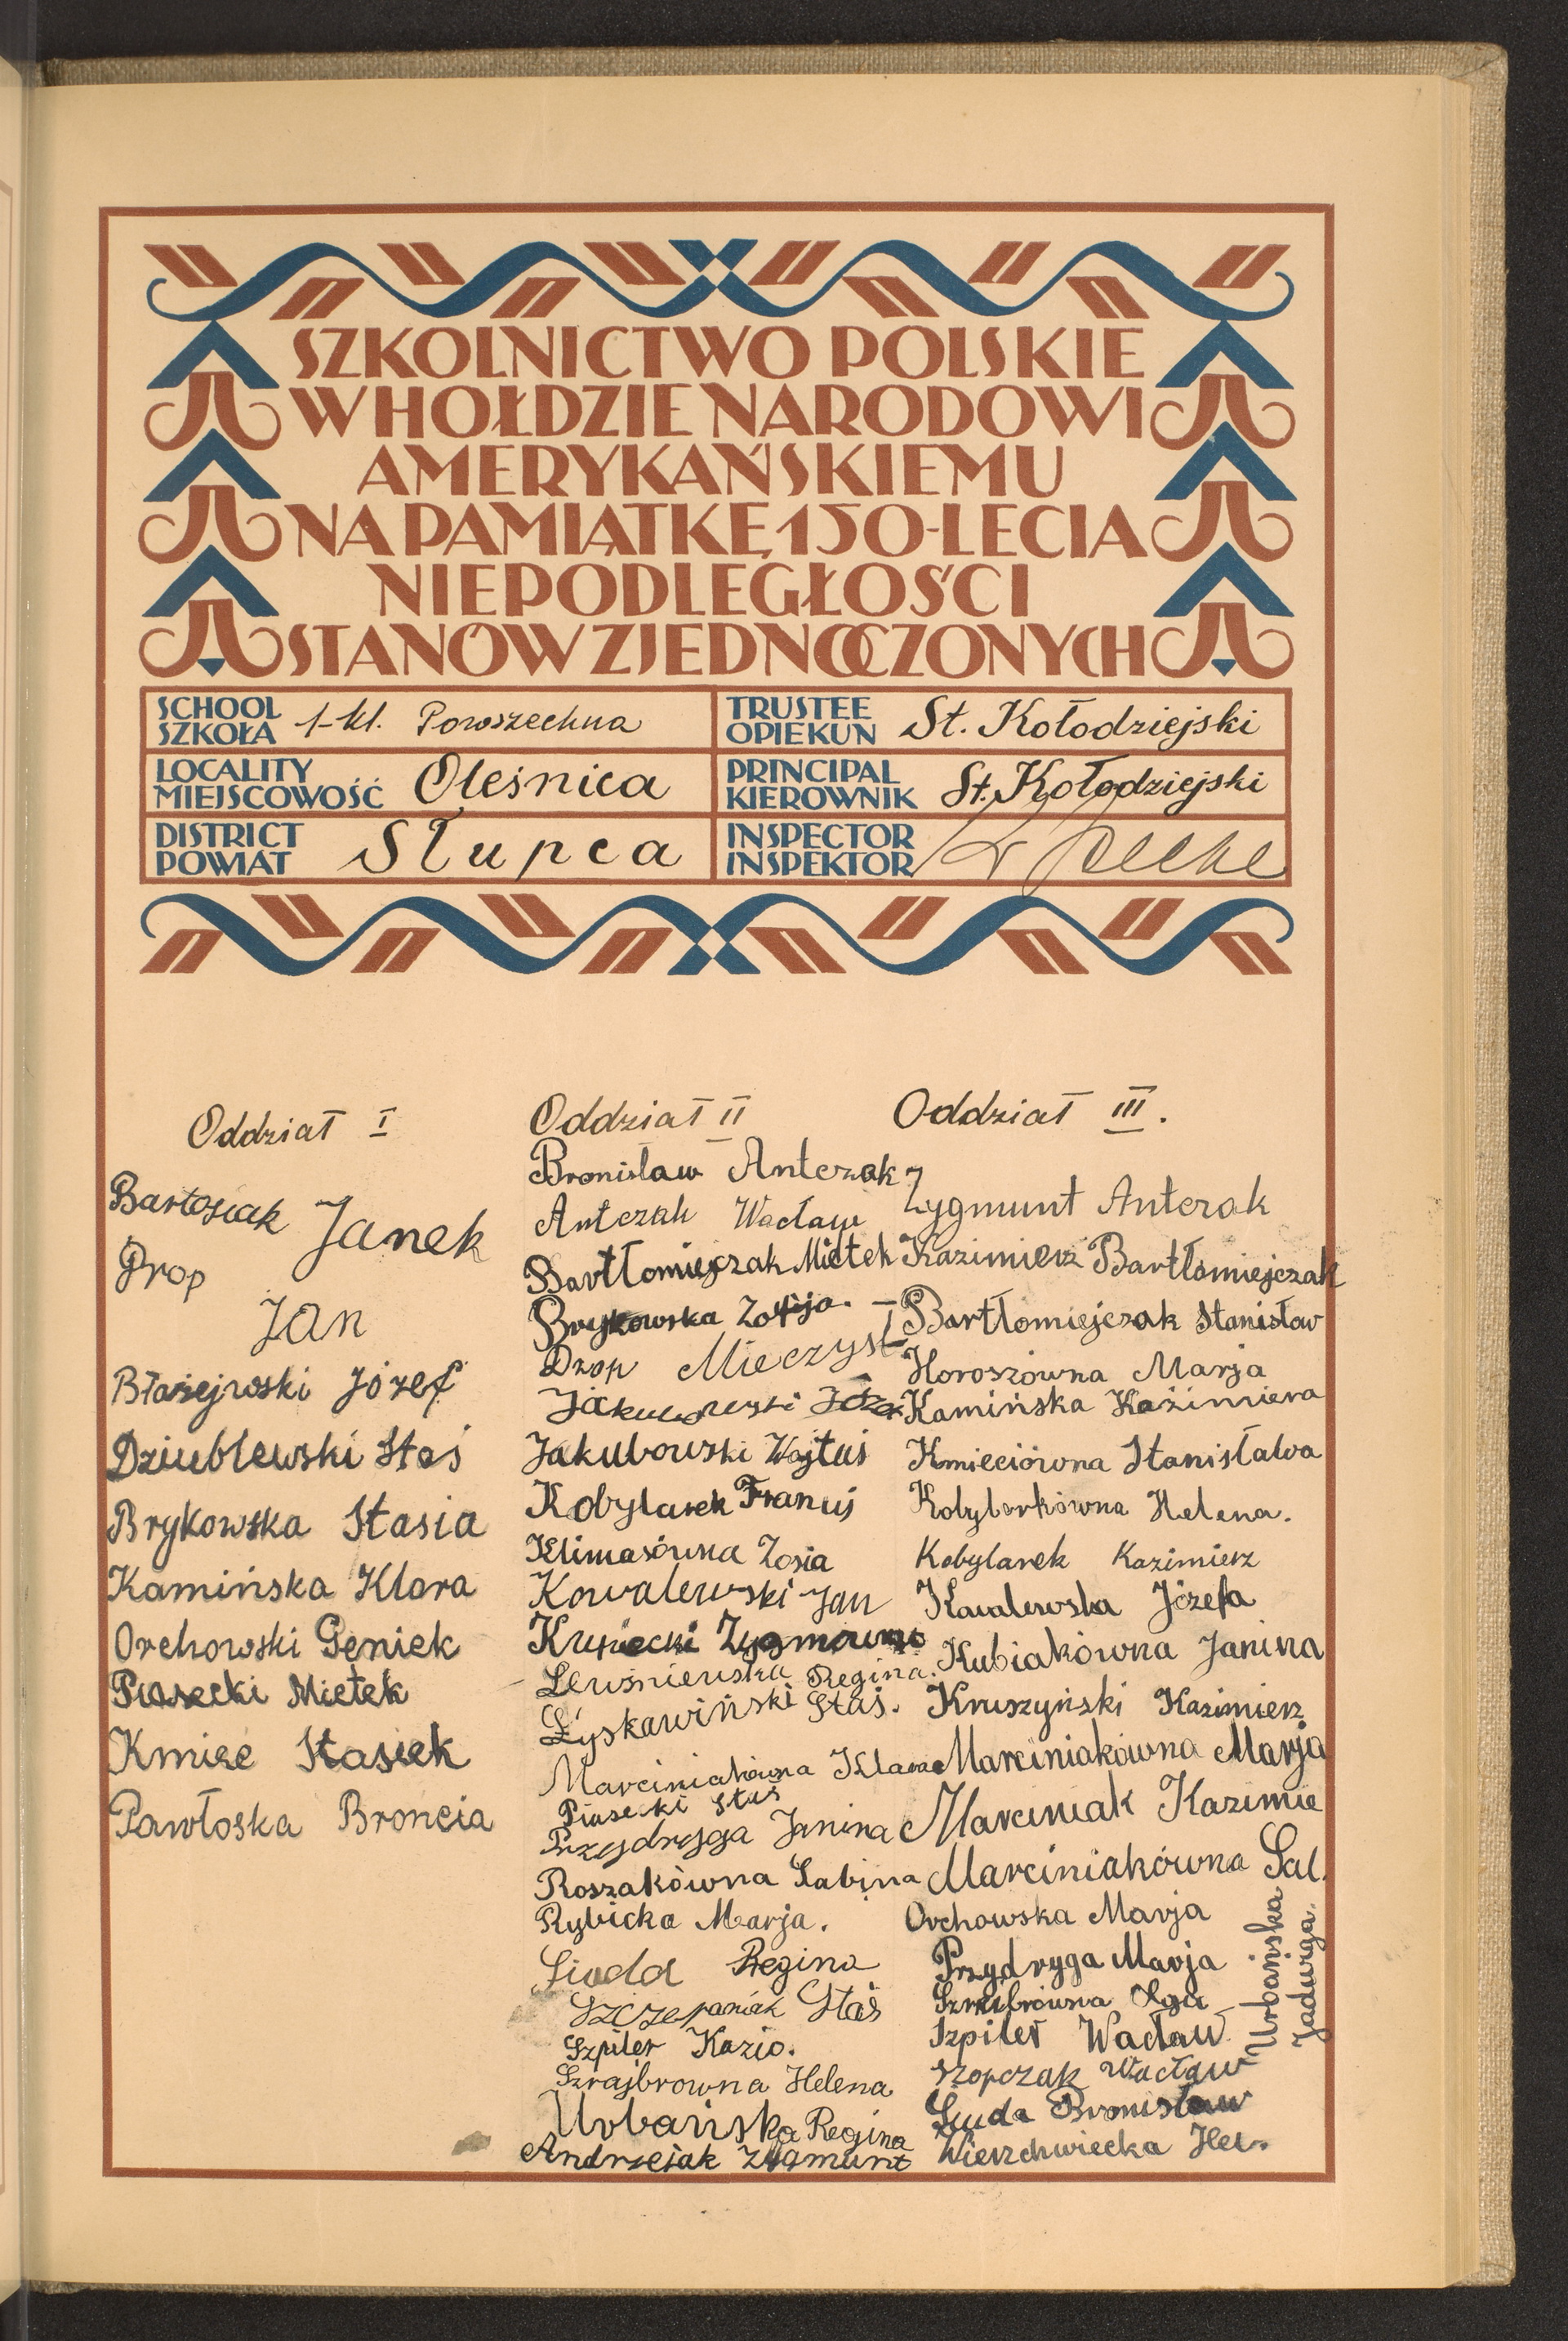 SZKOLNICTWO POLSKIE
W HOŁDZIE NARODOWI
AMERYKAŃSKIEMU
NA PAMIĄTKĘ 150-LECIA
NIEPODLEGŁOŚCI
STANÓW ZJEDNOCZONYCH
SCHOOL
SZKOŁA 1-kl. Powszechna
LOCALITY
MIEJSCOWOŚĆ Oleśnica
DISTRICT
POWIAT Słupca
TRUSTEE
OPIEKUN St. Kołodziejski
PRINCIPAL
KIEROWNIK St. Kołodziejski
INSPECTOR
INSPEKTOR
Oddział I
Bartosiak Janek
Drop
Jan
Błażejwski Józef
Dziublewski Staś
Brykowska Stasia
Kamińska Klara
Orchowski Geniek
Piasecki Mietek
Kmieć Stasiek
Pawłoska Broncia
Oddział II
Bronisław Antczak
Antczak Wacław
Bartłomiejczak Mietek
Brykowska Zofija.
Drop Mieczysł
Jakubowski Józef
Jakubowski Wojtuś
Kobylarek Franuś
Klimasówna Zosia
Kowalewski Jan
Kupiecki Zygmount
Lewśniewska Regina.
Łyskawiński Staś.
Marciniakówna Klara
Piasecki Staś
Przydryga Janina
Roszakówna Sabina
Rybicka Marja.
Siuda Regina
Szczepaniak Staś
Szpiler Kazio.
Szrajbrowna Helena
Urbańska Regina
Andrzejak Zygmunt
Oddział III.
Zygmunt Antczak
Kazimierz Bartłomiejczak
Bartłomiejczak Stanisław
Horoszówna Marja
Kamińska Kazimiera
Kmieciówna Stanisława
Kobylarkówna Helena.
Kobylarek Kazimierz
Kowalewska Józefa
Kubiakówna Janina
Kruszyński Kazimierz
Marciniakówna Marja
Marciniak Kazimie
Marciniakówna Sal.
Orchowska Marja
Przydryga Marja
Szrajbrówna Olga
Szpiler Wacław
Szopczak Wacław
Siuda Bronisław
Wierzchwiecka Hel.
Urbańska
Jadwiga.